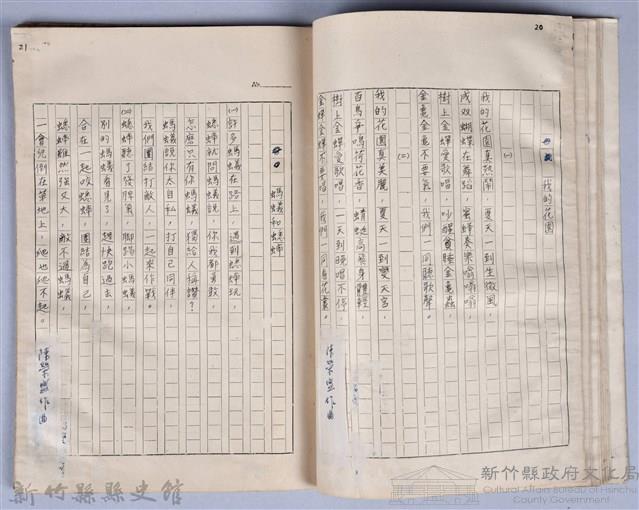 20
我的花園
(一)
我的花園真熱鬧，夏天一到生微風，
成双蝴蝶在舞蹈，蜜蜂奏樂嗡嗡嗡，
樹上金蟬愛歌唱，吵醒貪睡金龜蟲，
金龜金龜不要氣，我們一同聽歌聲。
(二)
我的花園真美麗，夏天一到變天宮，
百鳥爭鳴荷花香，蜻蜓高飛身體輕
樹上金蟬愛歌唱，一天到晚唱不停，
金蟬金蟬不要唱，我們一同看花叢。
陳榮盛作曲
21
No.
螞蟻和蟋蟀
(一)許多螞蟻在路上，遇到蟋蟀玩
蟋蟀就問螞蟻說，你我都勇敢，
怎麼只有你螞蟻，獨給人稱讚？
螞蟻說你太自私，打自己同伴，
我們團結打敵人，一起來作戰。
(二)蟋蟀聽了發脾氣，腳踢小螞蟻，
別的螞蟻看見了，趕快跑過去，
合在一起咬蟋蟀，團結為自己，
蟋蟀雖然強又大，敵不過螞蟻，
一會兒倒在草地上，爬也爬不起。
陳榮盛作曲
新竹縣縣史館
新竹縣政府文化局
Cultural Affairs Bureau of Hsinchu
County Government